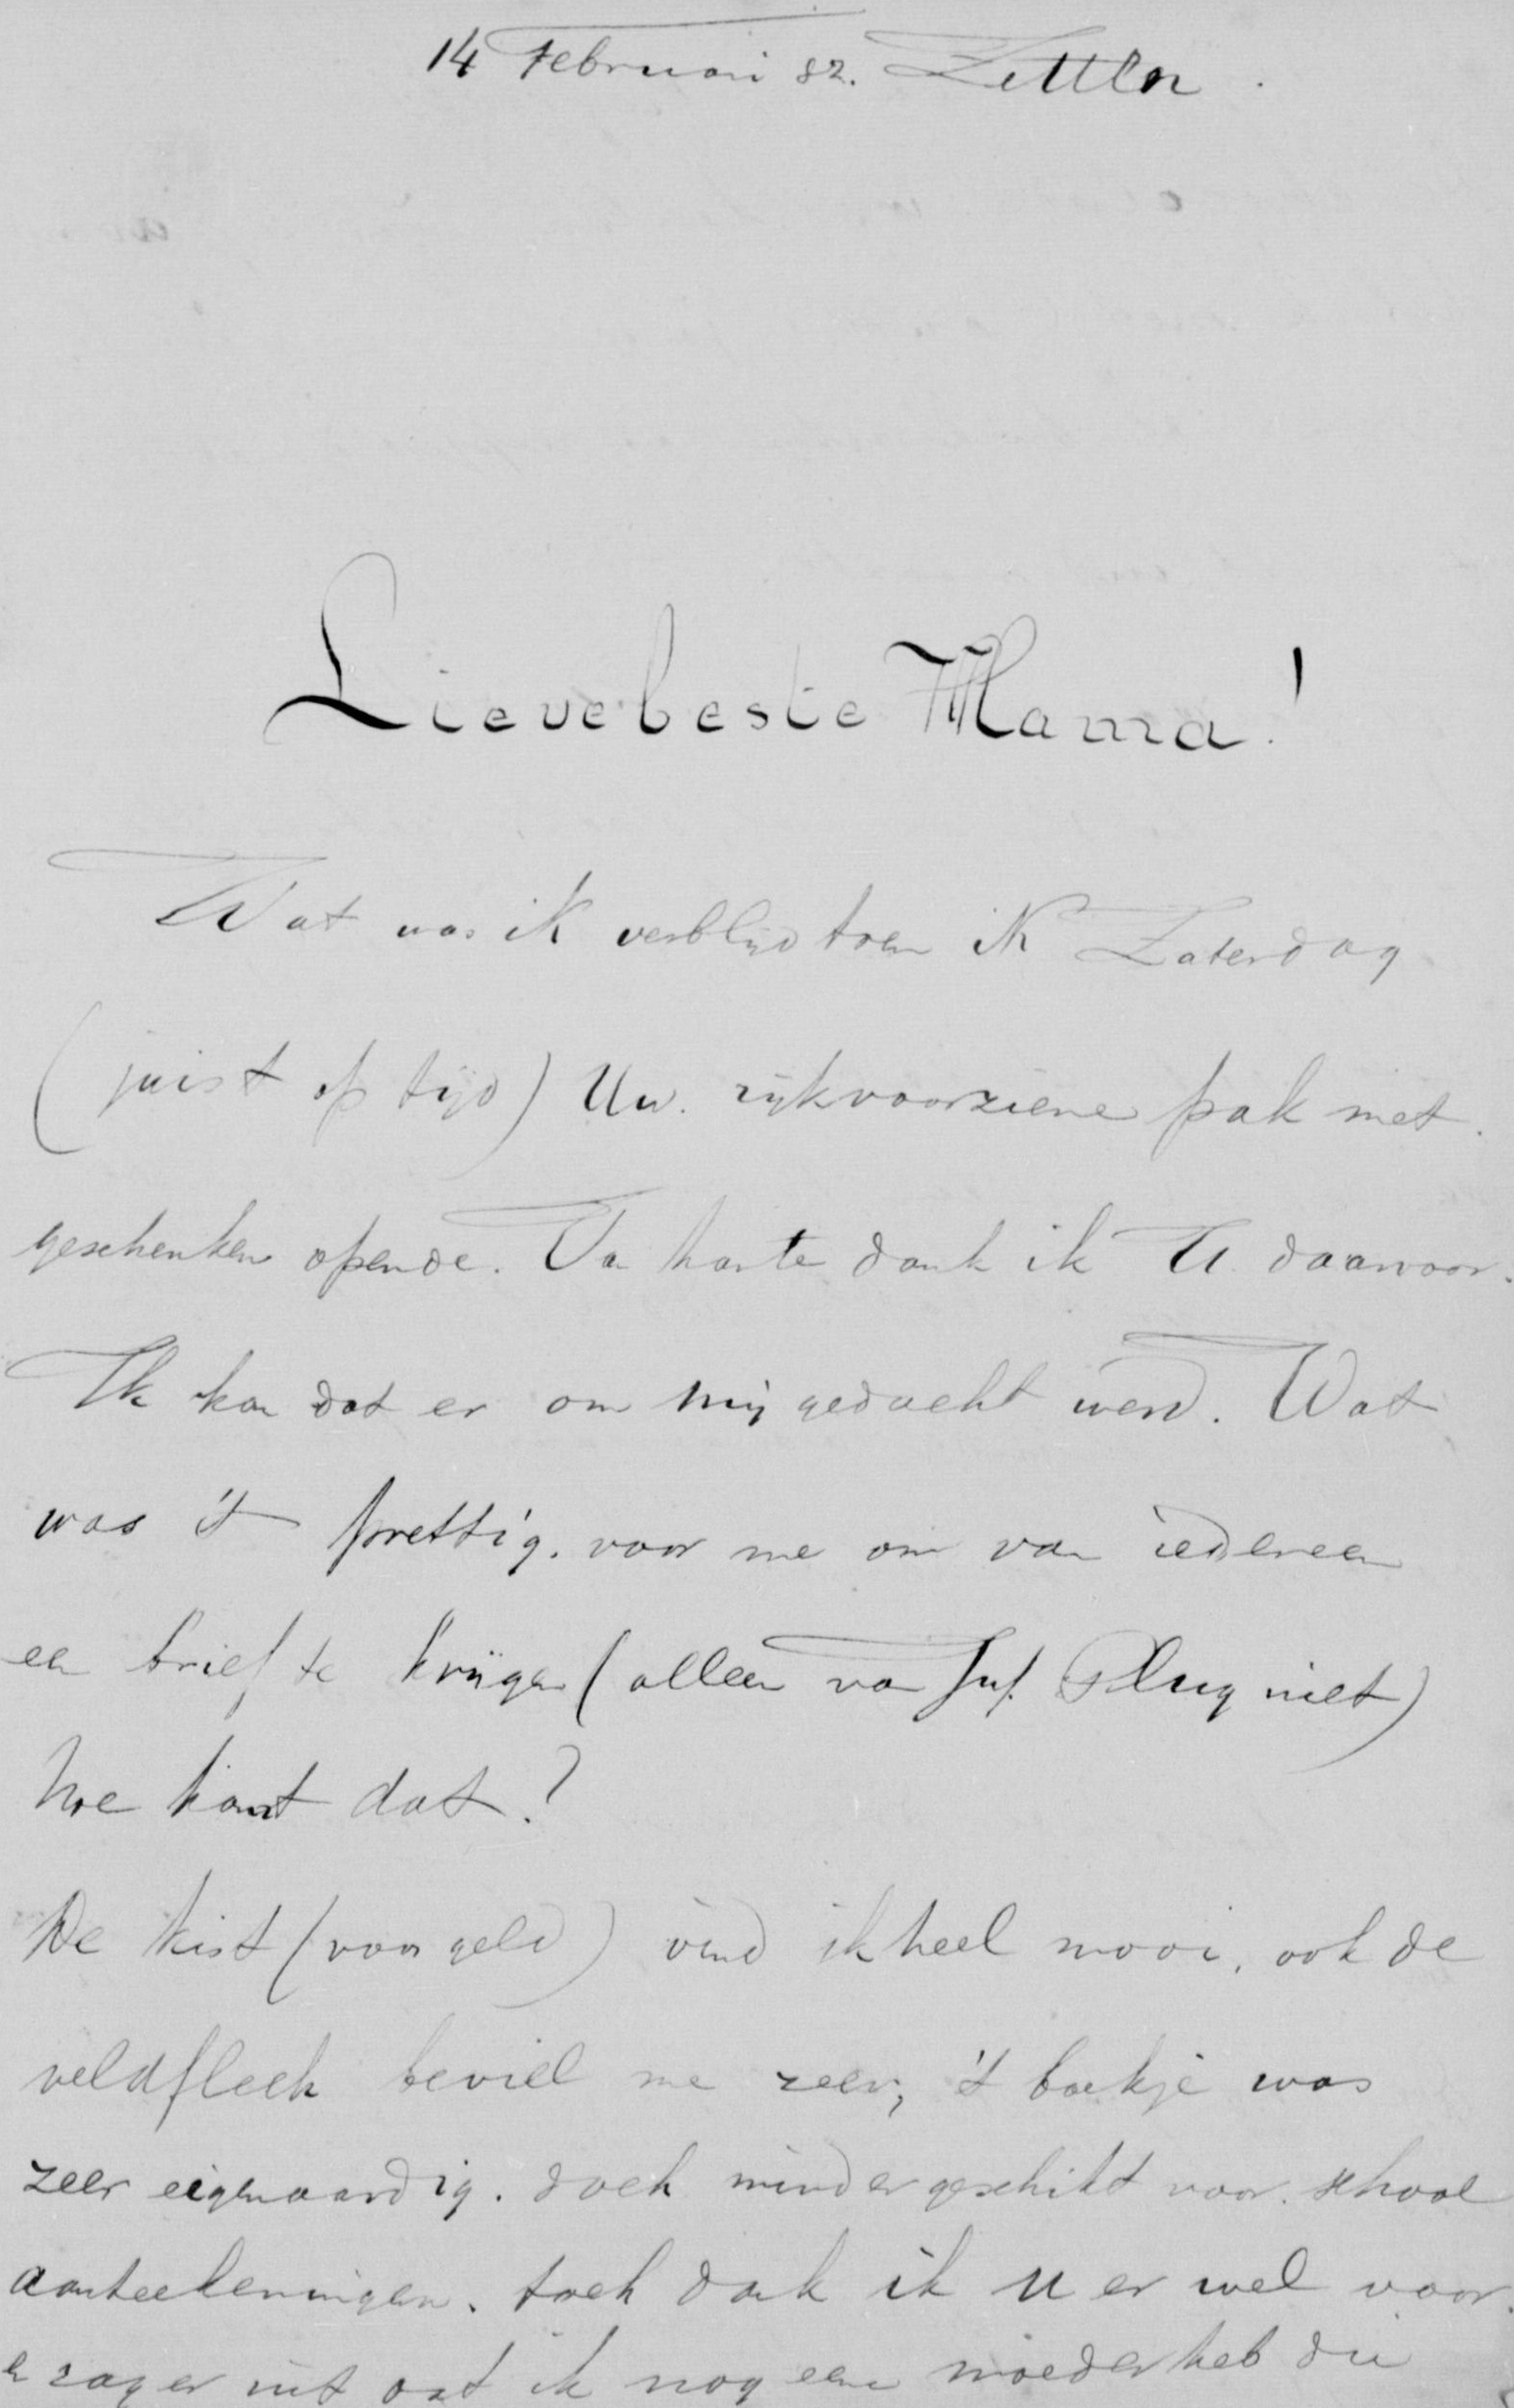 14 Februari 82. Zetten.
Lieve beste Mama!
Wat was ik verblijd toen ik Zaterdag
(juist op tijd) Uw. rijkvoorziene pak met
geschenken opende. Van harte dank ik U daarvoor.
Ik kon dat er om mij gedacht werd. Wat
was 't prettig. voor me om van iedereen
een brief te krijgen (alleen van Juf. Plug niet)
hoe komt dat?
De kist (voor geld) vind ik heel mooi, ook de
veldflesch beviel me zeer; 't boekje was
zeer eigenaardig. doch minder geschikt voor. school
aanteekeningen. toch dank ik U er wel voor.
zag er uit dat ik nog een moeder heb die